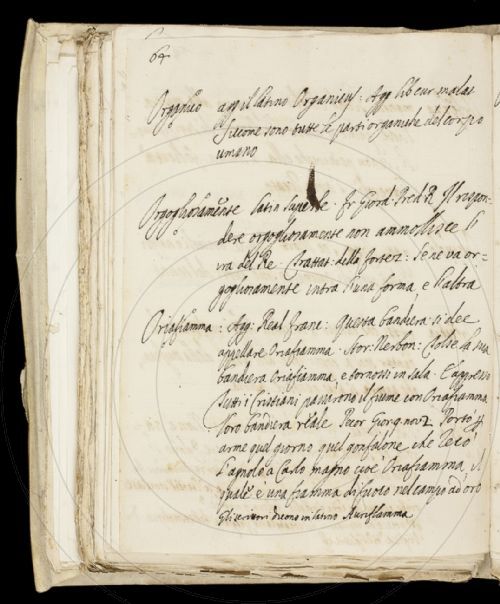 64
Organico app il latino Organicus: Agg
sicome sono tutte le parti organiche del corpo
umano
Orgogliosamente latin superbe. Fr Giord: Pred R Il rispon-
dere orgogliosamente non ammollisce l'
ira del Re. Trattat: della fortez: Se ne va or-
gogliosamente intra l'una forma e l'altra
Oriafiamma: Agg: Real Franc: Questa bandiera si dee
appellare Oriafiamma. Stor: Nerbon: Tolse la sua
bandiera Oriafiamma, e tornossi in sala. E appresso
Tutti i Cristiani passarono il fiume con Oriafiamma
loro bandiera reale Pecor Giorg nov 2 Portò
arme quel giorno quel gonfalone che recò
l'agnolo a Carlo magno cioè Oriafiamma, il
quale è una fiamma di fuoco nel campo ad oro
Gli scrittori dicono in latino Auriflamma